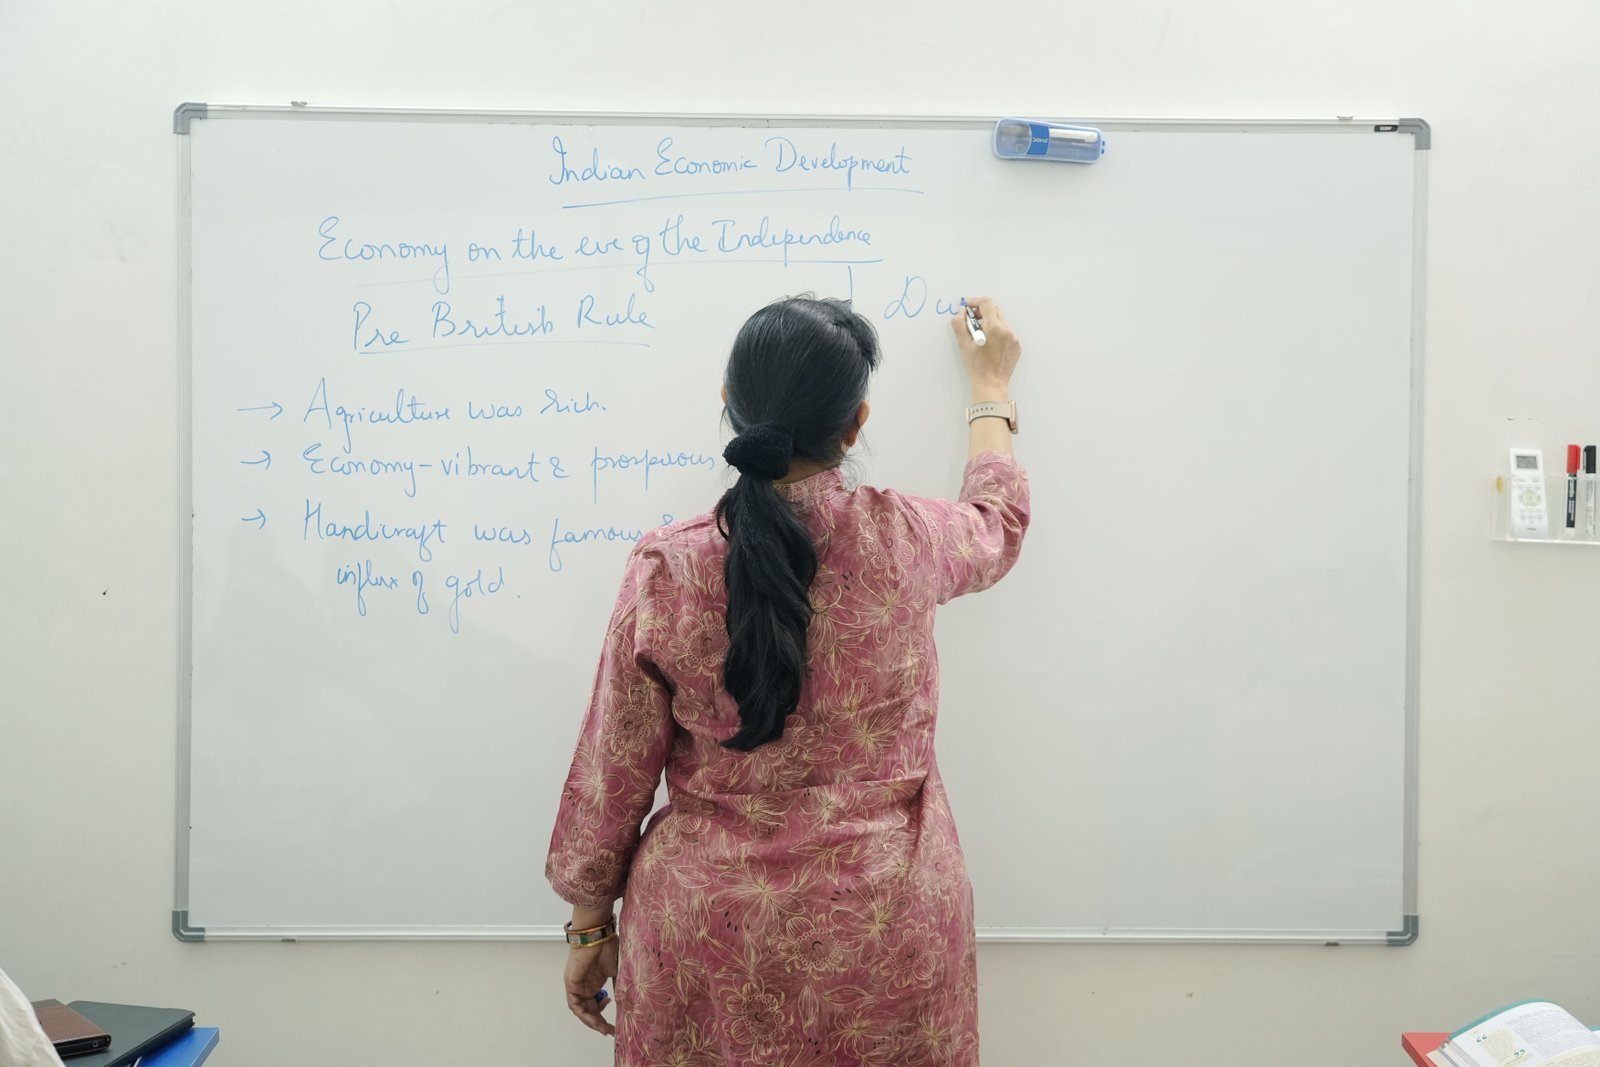 Indian Economic Development
Economy on the eve of the Independence
Pre British Rule
Du
→ Agriculture was rich.
→ Economy-vibrant & prosperous
→ Handicraft was famous &
influx of gold.